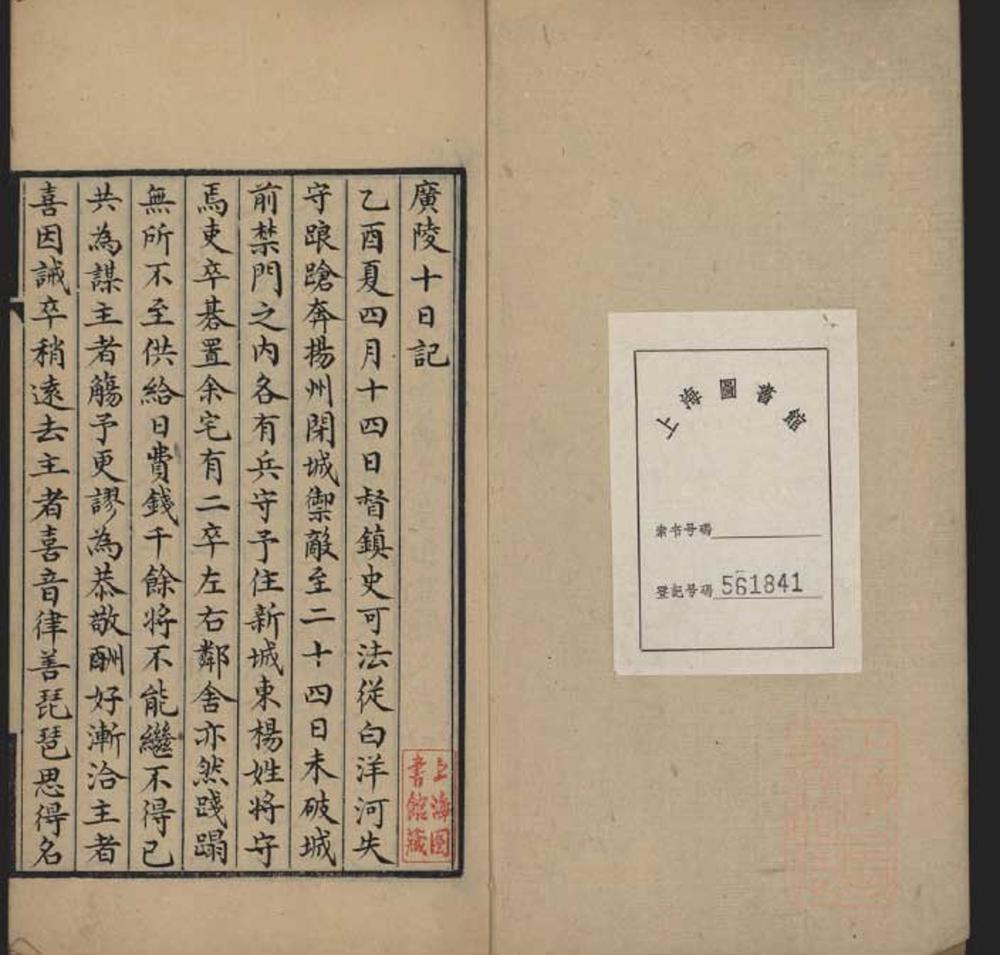 上海圖書館
索书号碼
登記号碼 561841
廣陵十日記
上海圖
書館藏
乙酉夏四月十四日督鎮史可法從白洋河失
守踉蹌奔揚州閉城禦敵至二十四日未破城
前禁門之內各有兵守予住新城東楊姓將守
焉吏卒碁置余宅有二卒左右鄰舍亦然踐蹋
無所不至供給日費錢千餘將不能繼不得已
共為謀主者觴予更謬為恭敬酬好漸洽主者
喜因誡卒稍遠去主者喜音律善琵琶思得名